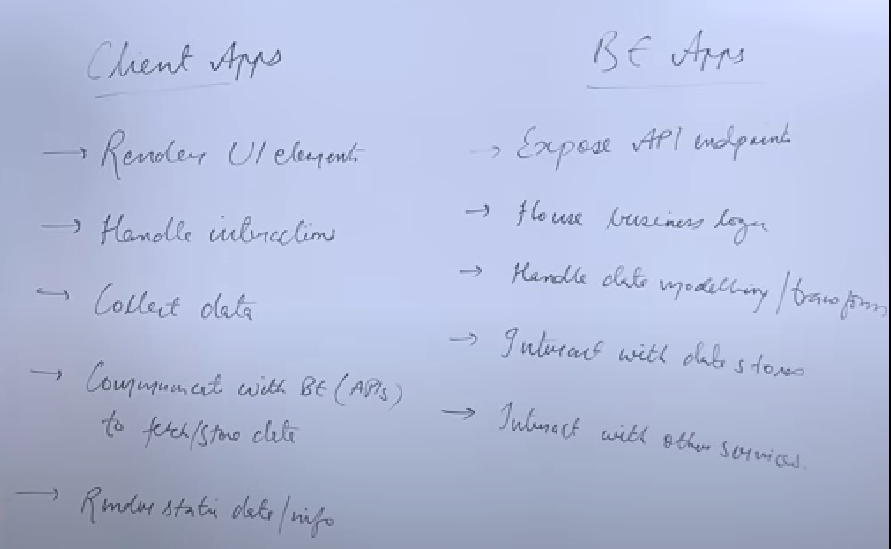 Client Apps
→ Render UI elements
→ Handle interactions
→ Collect data
→ Communicat with BE (APIs)
to fetch/store data
→ Render static data/info
BE Apps
→ Expose API endpoints
→ House business logic
→ Handle data modelling/transform
→ Interact with data stores
→ Interact with other services.